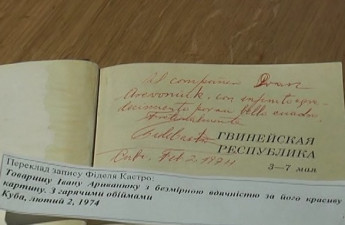 al compañero Ivan
Arevoniuk. con infinito agra-
decimiento por su bello cuadro.
Fraternalmente
Fidel Castro
Cuba. Feb 2. 1974
ГВИНЕЙСКАЯ
РЕСПУБЛИКА
3—7 мая
Переклад запису Фіделя Кастро:
Товаришу Івану Ариванюку з безмірною вдячністю за його красиву
картину. З гарячими обіймами
Куба, лютий 2, 1974